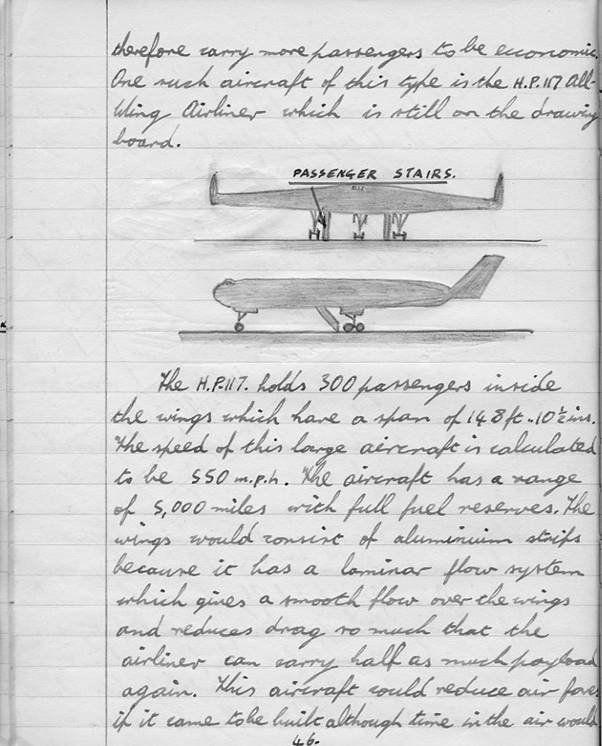 therefore carry more passengers to be economic.
One such aircraft of this type is the H.P.117 All-
Wing Airliner which is still on the drawing
board.
PASSENGER STAIRS.
The H.P.117. holds 300 passengers inside
the wings which have a span of 148ft..10½ins.
The speed of this large aircraft is calculated
to be 550 m.p.h. The aircraft has a range
of 5,000 miles with full fuel reserves. The
wings would consist of aluminium strips
because it has a laminar flow system
which gives a smooth flow over the wings
and reduces drag so much that the
airliner can carry half as much payload
again. This aircraft could reduce air fares
if it came to be built although time in the air would
46.